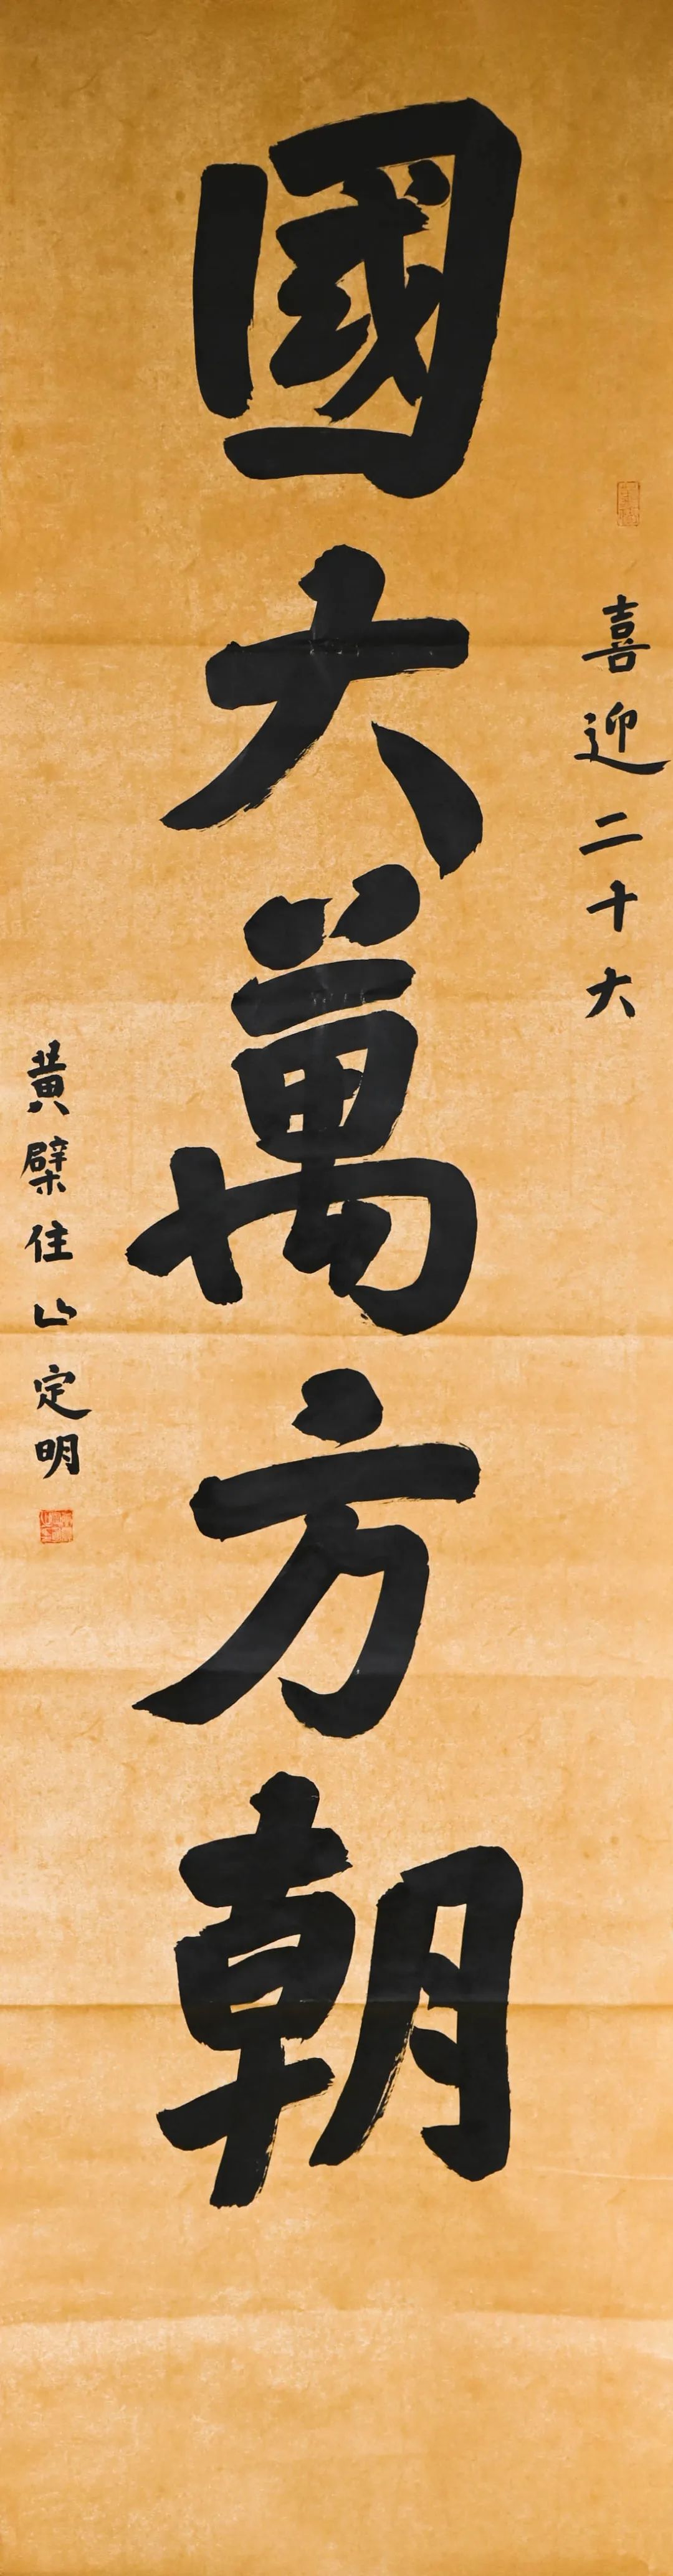 喜迎二十大
國大萬方朝
黄檗住山定明